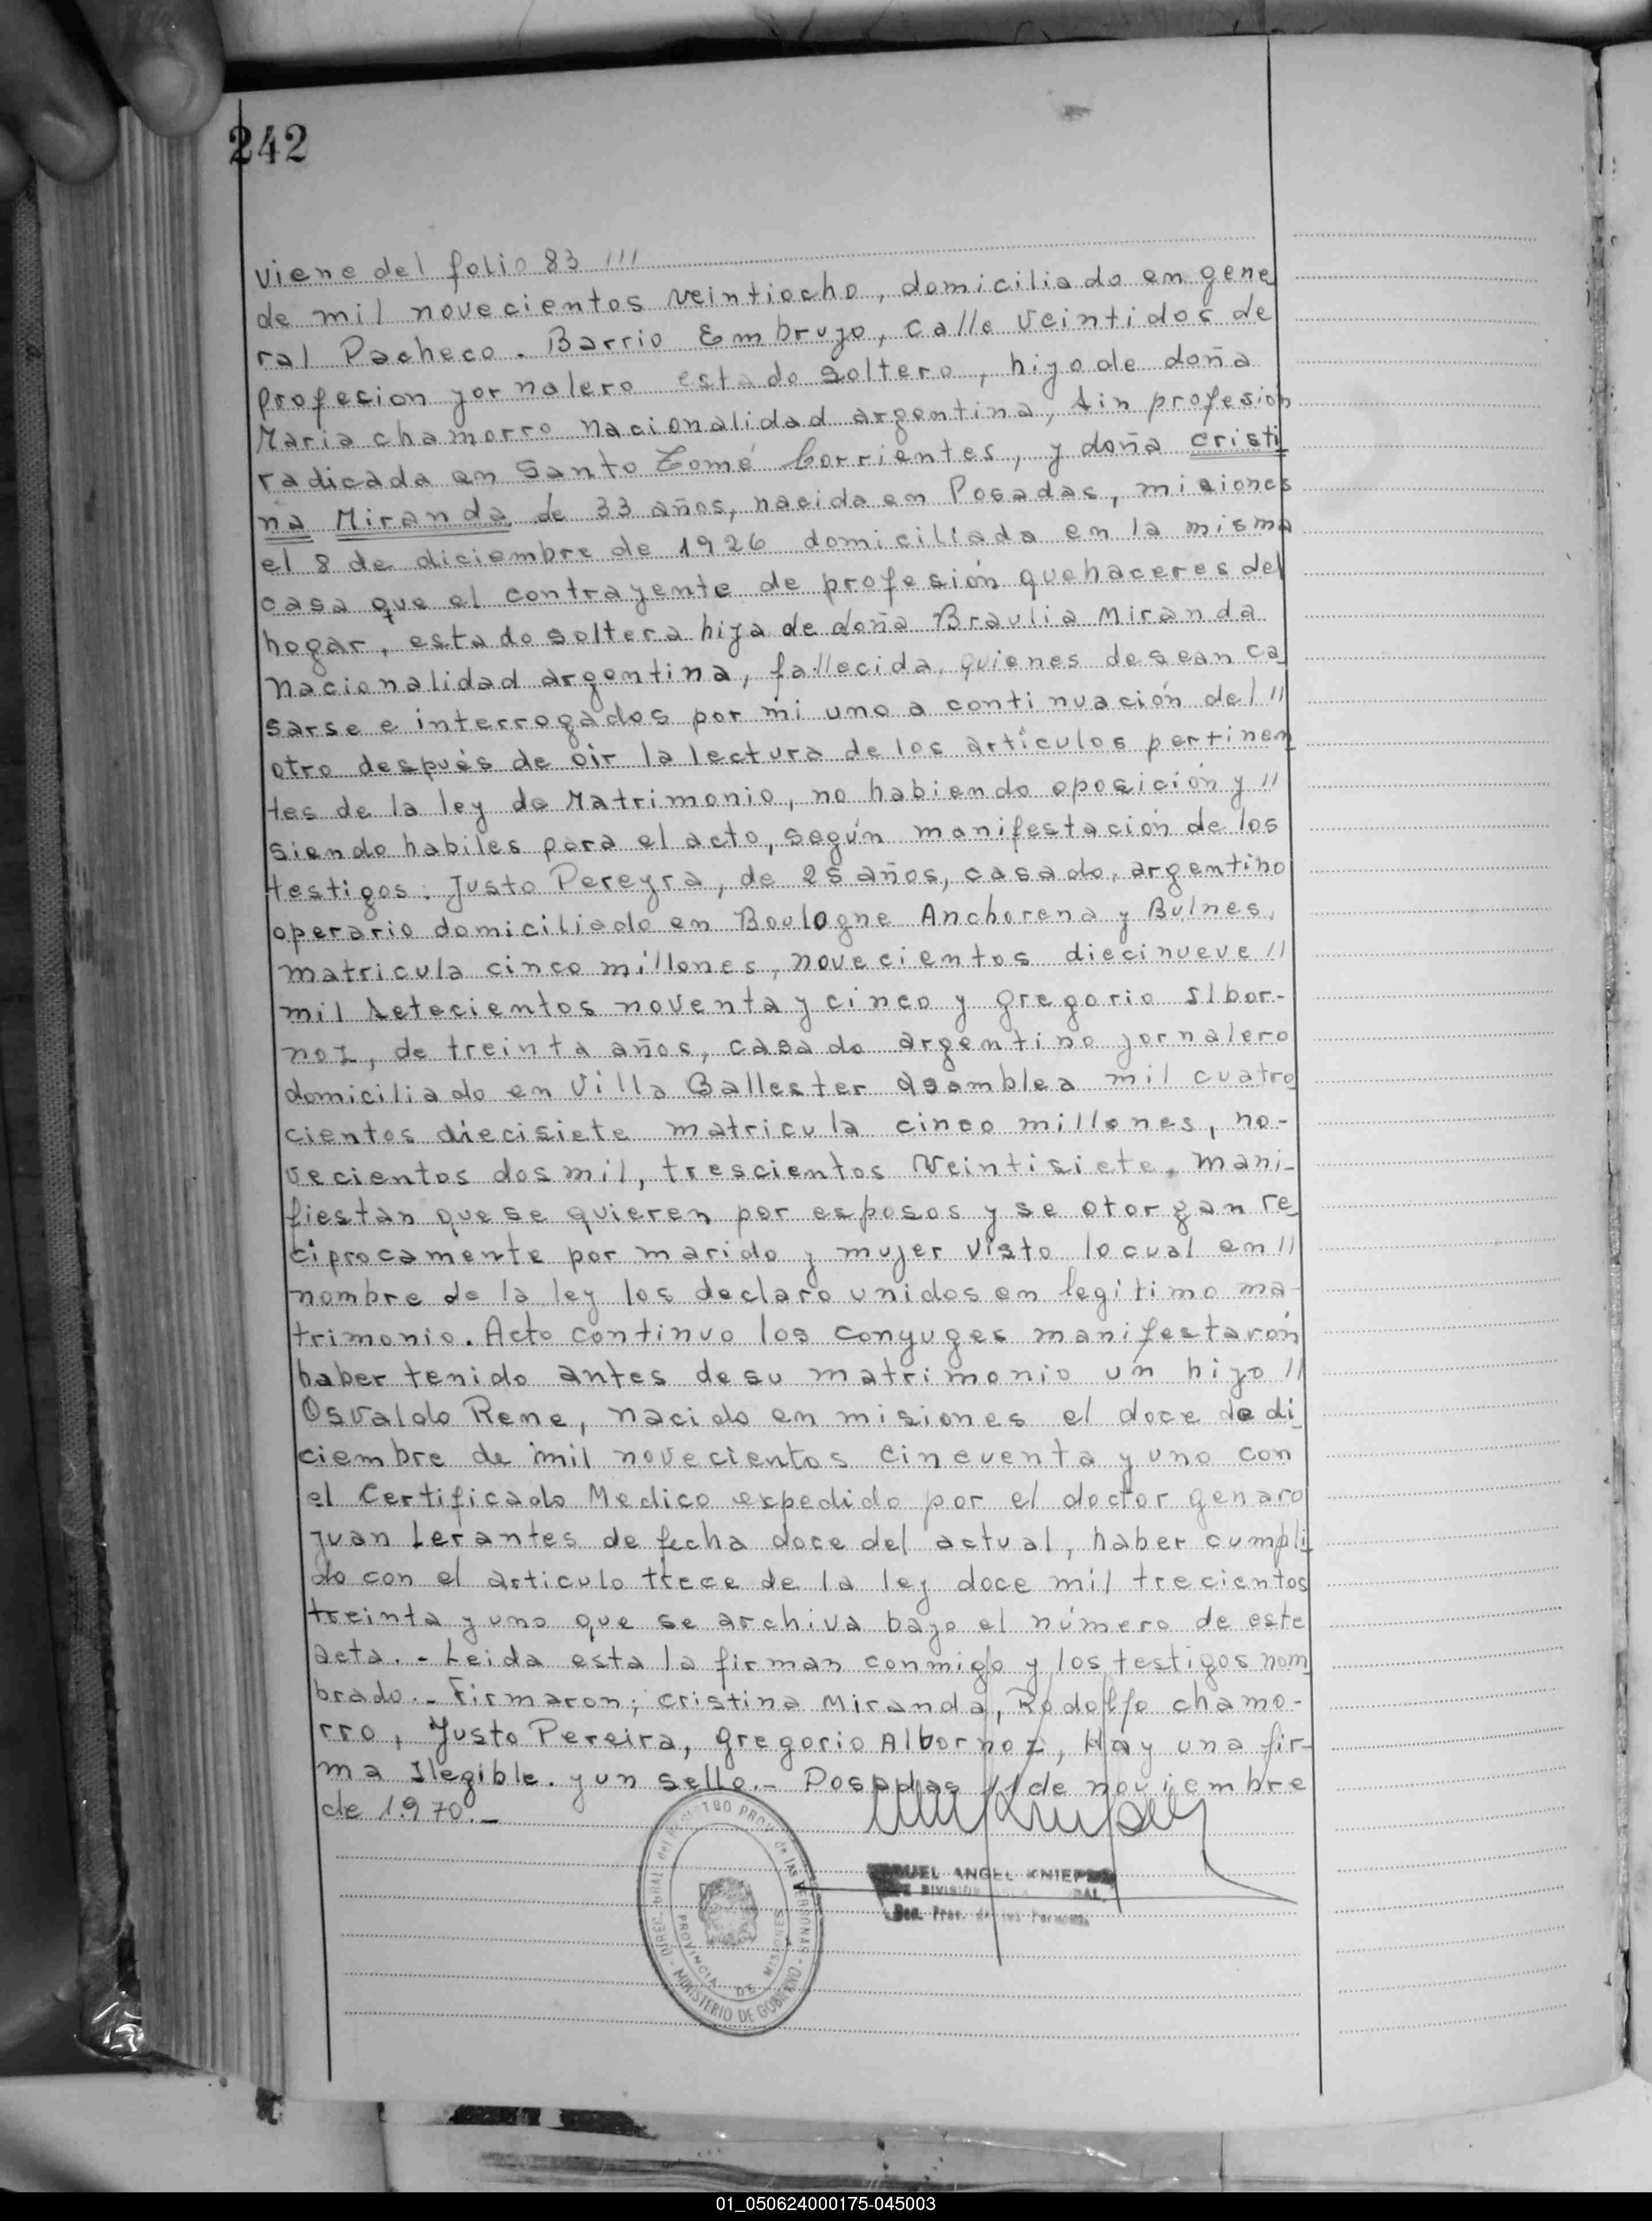 242
viene del folio 83 ///
de mil novecientos veintiocho, domiciliado en gene
ral Pacheco. Barrio Embrujo, calle Veintidos de
profecion jornalero estado soltero, hijo de doña
Maria chamorro nacionalidad argentina, sin profesión
radicada en Santo Tomé Corrientes, y doña cristi
na Miranda de 33 años, nacida en Posadas, misiones
el 8 de diciembre de 1926 domiciliada en la misma
casa que el contrayente de profesión quehaceres del
hogar, estado soltera hija de doña Braulia Miranda
nacionalidad argentina, fallecida, quienes desean ca
sarse e interrogados por mi uno a continuación del //
otro después de oir la lectura de los artículos pertinen
tes de la ley de Matrimonio, no habiendo oposición y //
siendo habiles para el acto, según manifestación de los
testigos: Justo Pereyra, de 25 años, casado, argentino
operario domiciliado en Boulogne Anchorena y Bulnes,
matricula cinco millones, novecientos diecinueve //
mil setecientos noventa y cinco y gregorio Albor-
noz, de treinta años, casado argentino jornalero
domiciliado en Villa Ballester Asamblea mil cuatro
cientos diecisiete matricula cinco millones, no-
vecientos dos mil, trescientos Veintisiete. mani-
fiestan que se quieren por esposos y se otorgan re
ciprocamente por marido y mujer visto lo cual en //
nombre de la ley los declaro unidos en legitimo ma-
trimonio. Acto continuo los conyuges manifestarón
haber tenido antes de su matrimonio un hijo //
Osvaldo Rene, nacido en misiones el doce de di
ciembre de mil novecientos cincuenta y uno con
el Certificado Medico expedido por el doctor genaro
Juan Lerantes de fecha doce del actual, haber cumpli
do con el articulo trece de la ley doce mil trecientos
treinta y uno que se archiva bajo el número de este
acta. - Leida esta la firman conmigo y los testigos nom
brado.- Firmaron; cristina Miranda, Rodolfo chamo-
rro, Justo Pereira, gregorio Albornoz, Hay una fir-
ma Ilegible. y un sello.- Posadas 11 de noviembre
de 1.970.-
DIREC. GRAL. del REGISTRO PROV. de las PERSONAS - MINISTERIO DE GOBIERNO -
PROVINCIA DE MISIONES
ANGEL
DIVISION
01_050624000175-045003